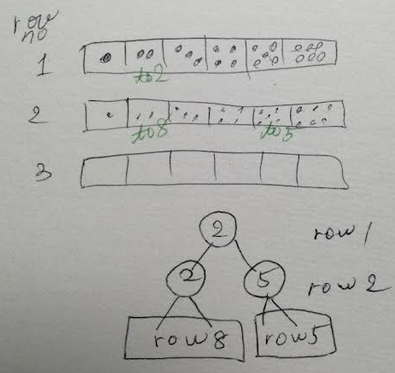 row
no
1
to2
2
to8 to5
3
2 row 1
2 5 row 2
row8 row5